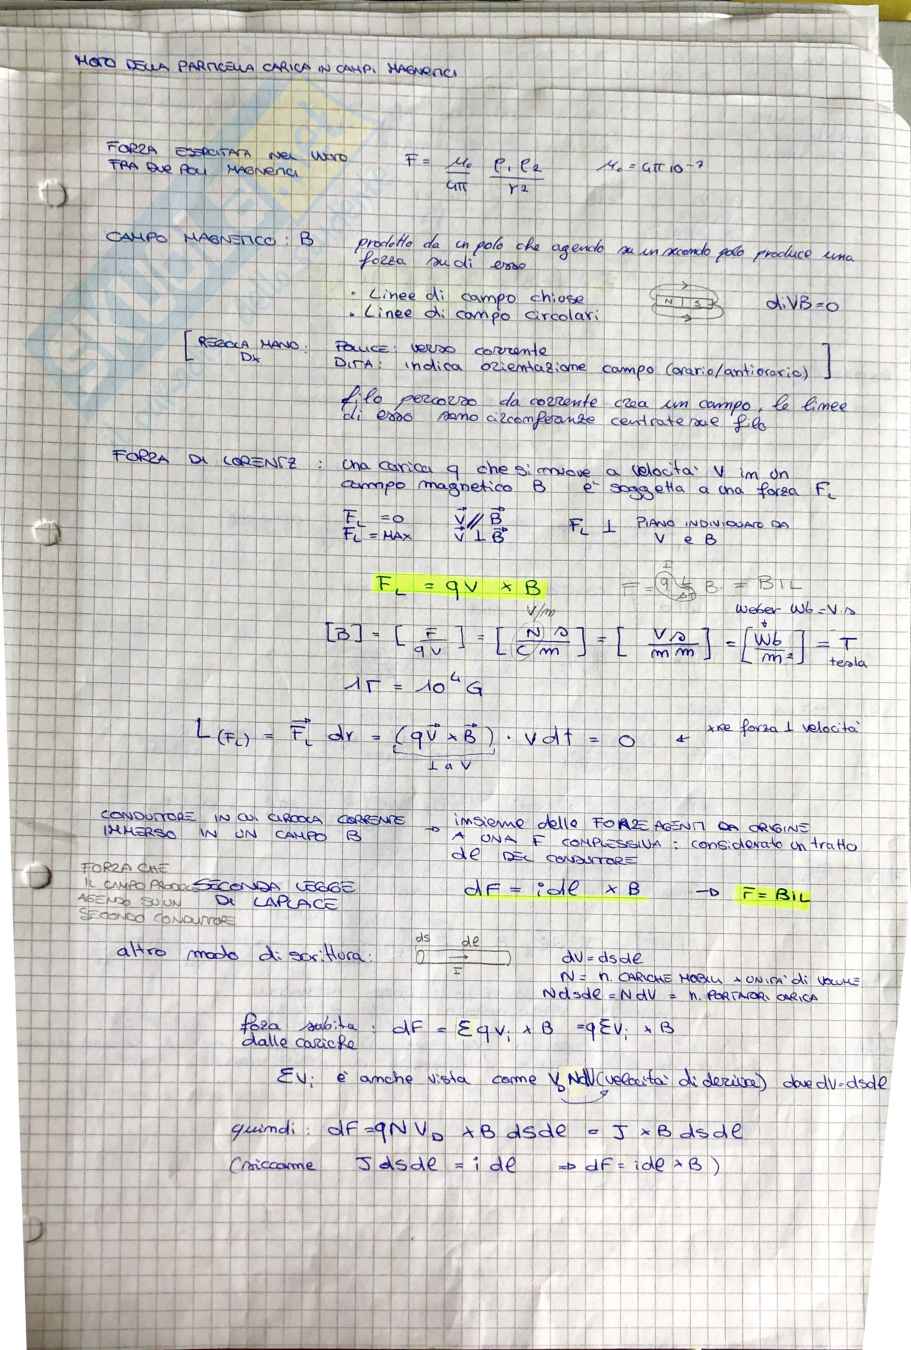 MOTO DELLA PARTICELLA CARICA IN CAMPI MAGNETICI
FORZA ESERCITATA NEL VUOTO
TRA DUE POLI MAGNETICI
F = μ₀/4π ρ₁ρ₂/r² μ₀ = 4π10⁻⁷
CAMPO MAGNETICO : B prodotto da un polo che agendo su un secondo polo produce una
forza su di esso
· Linee di campo chiuse
· Linee di campo circolari
N S
div B = 0
[REGOLA MANO : POLLICE : verso corrente
DX DITA : indica orientazione campo (orario/antiorario)]
filo percorso da corrente crea un campo, le linee
di esso sono circonferenze centrate sul filo
FORZA DI LORENTZ : una carica q che si muove a velocità V in un
campo magnetico B è soggetta a una forza F_L
F_L = 0 V⃗ // B⃗
F_L = MAX V⃗ ⊥ B⃗
F_L ⊥ PIANO INDIVIDUATO DA
V e B
F_L = qV × B
= BIL
V/m
weber Wb = V·s
[B] = [F/qV] = [N s/C m] = [V s/m m] = [Wb/m²] = T
tesla
1T = 10⁴ G
L(F_L) = F⃗_L dr = (qV⃗ × B⃗) · V dt = 0 ← xke forza ⊥ velocità
⊥ a V
CONDUTTORE IN CUI CIRCOLA CORRENTE → insieme delle FORZE AGENTI DA ORIGINE
IMMERSO IN UN CAMPO B A UNA F COMPLESSIVA : considerato un tratto
dl DEL CONDUTTORE
FORZA CHE
IL CAMPO PRODUCE
AGENDO SU UN
SECONDO CONDUTTORE
SECONDA LEGGE
DI LAPLACE
dF = i dl × B → F = BIL
altro modo di scrittura :
ds dl
I
dV = dsdl
N = n. CARICHE MOBILI × UNITÀ di VOLUME
Ndsdl = NdV = n. PORTATORI CARICA
forza subita : dF = Σqvᵢ × B = qΣvᵢ × B
dalle cariche
Σvᵢ è anche vista come V_D NdV (velocità di deriva) dove dV = dsdl
quindi : dF = qNV_D × B dsdl = J × B dsdl
(siccome J dsdl = i dl ⇒ dF = idl × B)